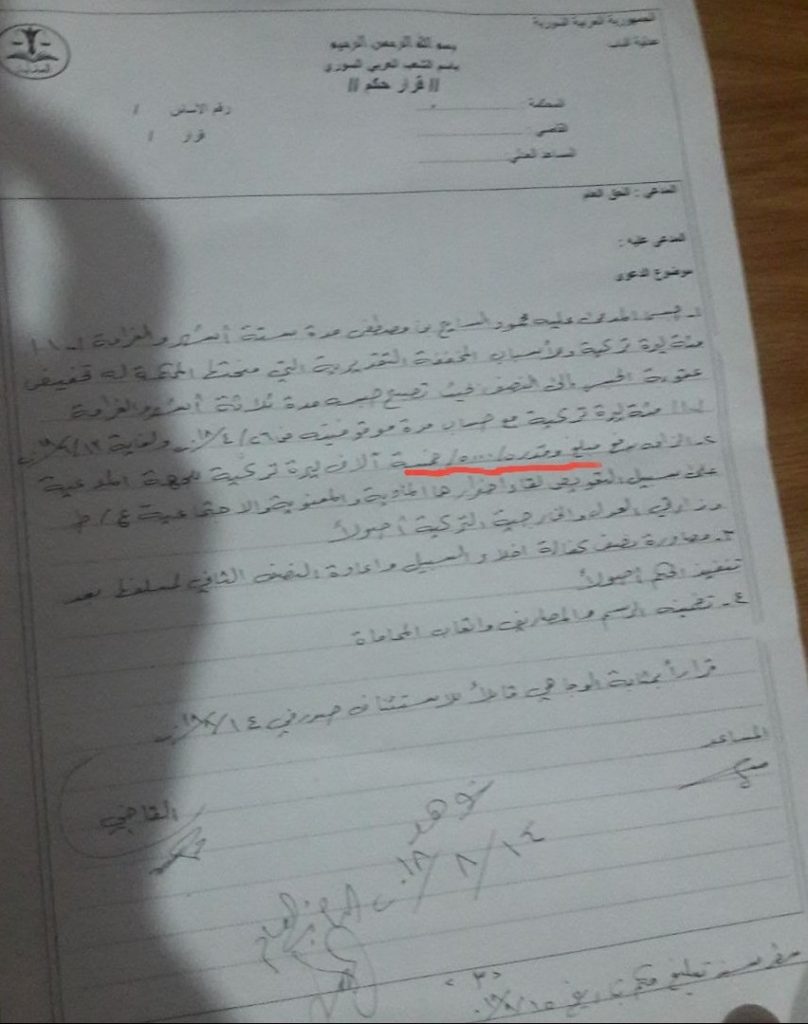 الجمهورية العربية السورية
عدلية الباب
بسم الله الرحمن الرحيم
باسم الشعب العربي السوري
// قرار حكم //
المحكمة
رقم الاساس /
القاضي
قرار /
المساعد العدلي
المدعي : الحق العام
المدعى عليه :
موضوع الدعوى
١- حبس المدعى عليه محمود السايح بن مصطفى مدة ستة أشهر والغرامة
مئة ليرة تركية وللأسباب المخففة التقديرية التي منحتها المحكمة له تخفيض
عقوبة الحبس إلى النصف بحيث تصبح حبسه مدة ثلاثة أشهر والغرامة
مئة ليرة تركية مع حساب مدة موقوفيته من ٢٦/٤/ ولغاية
٢- الزامه بدفع مبلغ وقدره /٥٠٠٠/ خمسة آلاف ليرة تركية للجهة المدعية
على سبيل التعويض لقاء اضرارها المادية والمعنوية والاجتماعية ع/ط
وزارتي العدل والخارجية التركية أصولاً
٣- مصادرة نصف كفالة اخلاء السبيل واعادة النصف الثاني بعد
تنفيذ الحكم أصولاً
٤- تضمينه الرسم والمصاريف واتعاب المحاماة
قراراً بمثابة الوجاهي قابلاً للاستئناف صدر في ١٤/
المساعد
القاضي
شوهد
١٤/٨/٠١٨
<٣>